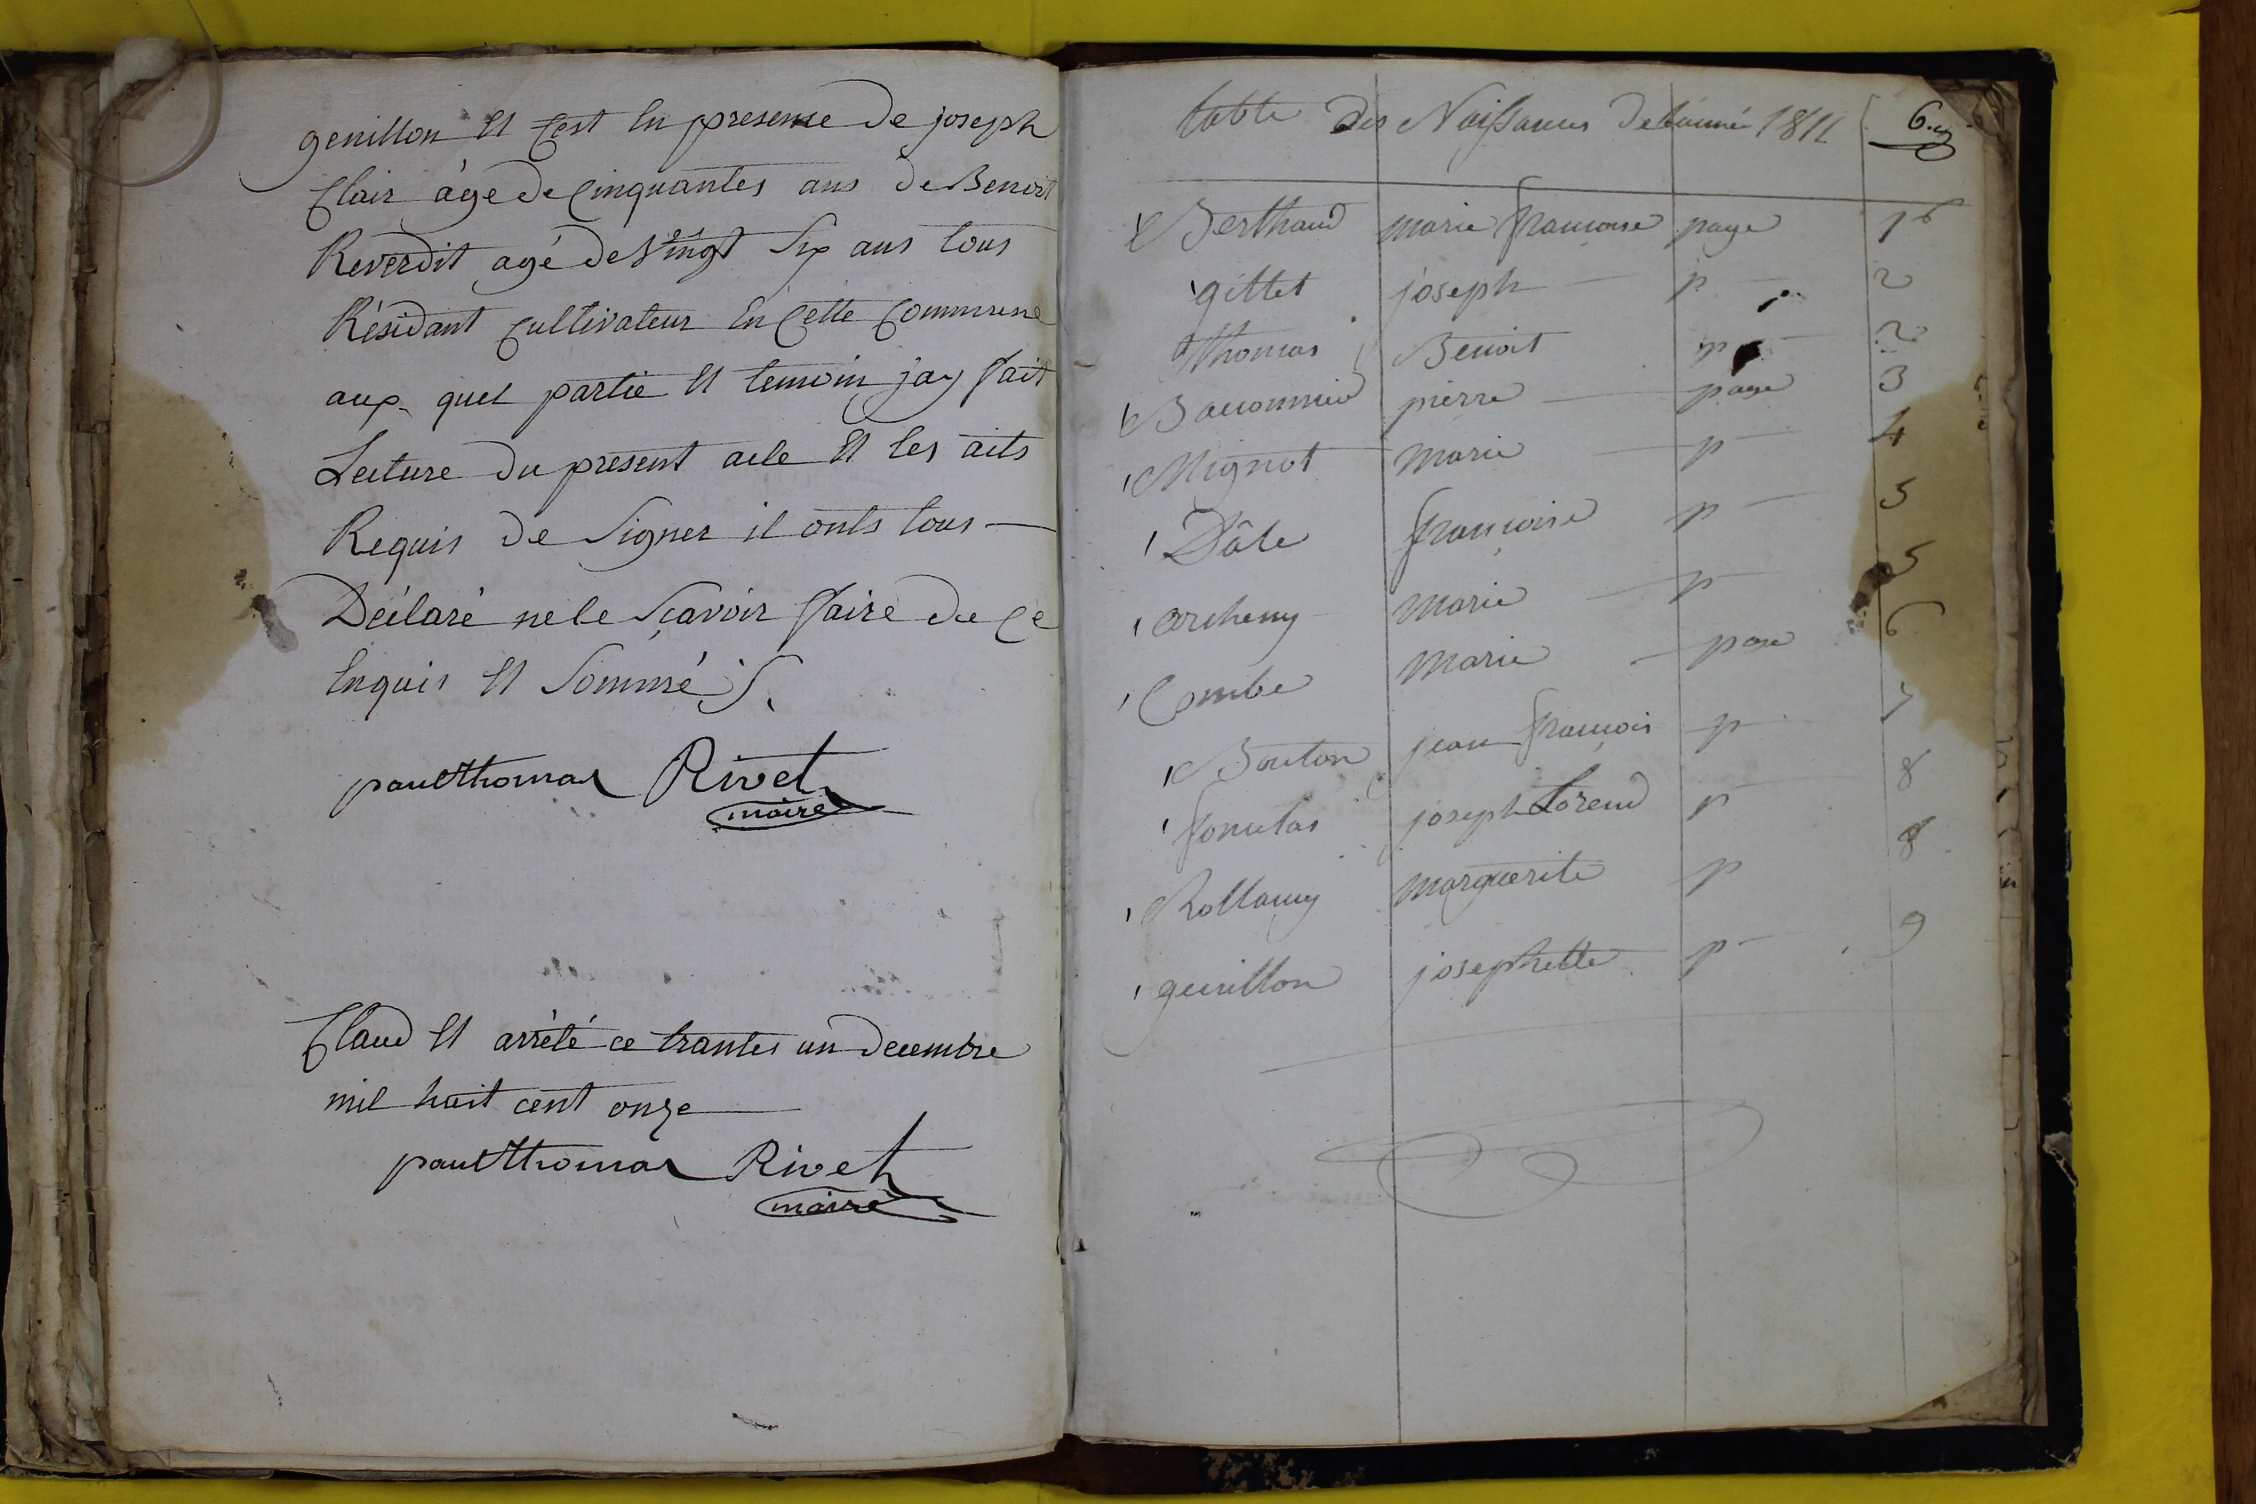 genillon Et Cest En presense de joseph
Clair âgé de Cinquantes ans de Benoit
Reverdit agé de Vingt Six ans tous
Résidant Cultivateur En Cette Commune
aux quel partie Et temoin jay fait
Lecture du présent acte Et les aits
Requis de Signer il onts tous —
Déclaré ne le Sçavoir faire de Ce
Enquis Et Sommé S.
paul thomas Rivet
maire
Claud Et arrêté ce trantes un decembre
mil huit cent onze
paul thomas Rivet
maire
table des Naissances de l'année 1811 6.
Berthaud marie françoise page 1er
gillet joseph — p — 2
thomas Benoit p — 2
Baconnier pierre — page 3
Mignot marie — p — 4
Dâle françoise p — 5
archeny marie — p — 5
Combe marie — page 6
Bouton jean françois p 7
joseph Lorend p 8
Rollamy marguerite p 8
genillon josephette p — 9